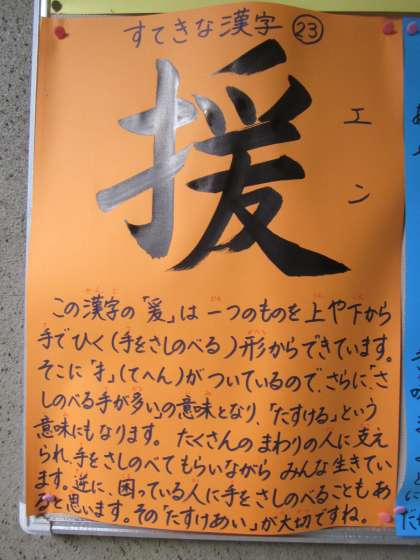 すてきな漢字 ㉓
援
エン
この漢字の「爰」は一つのものを上や下から
手でひく(手をさしのべる)形からできています。
そこに「扌」(てへん)がついているので、さらに「さ
しのべる手が多い」の意味となり、「たすける」という
意味にもなります。たくさんのまわりの人に支え
られ、手をさしのべてもらいながら みんな生きてい
ます。逆に、困っている人に手をさしのべることもあ
ると思います。その「たすけあい」が大切ですね。